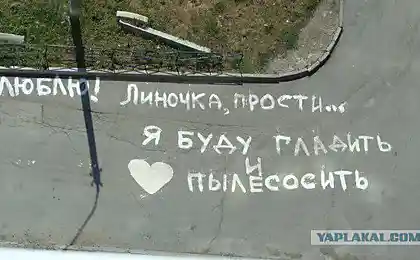 люблю! Линочка, прости...
Я буду гладить
и
пылесосить
YAPLAKAL.COM